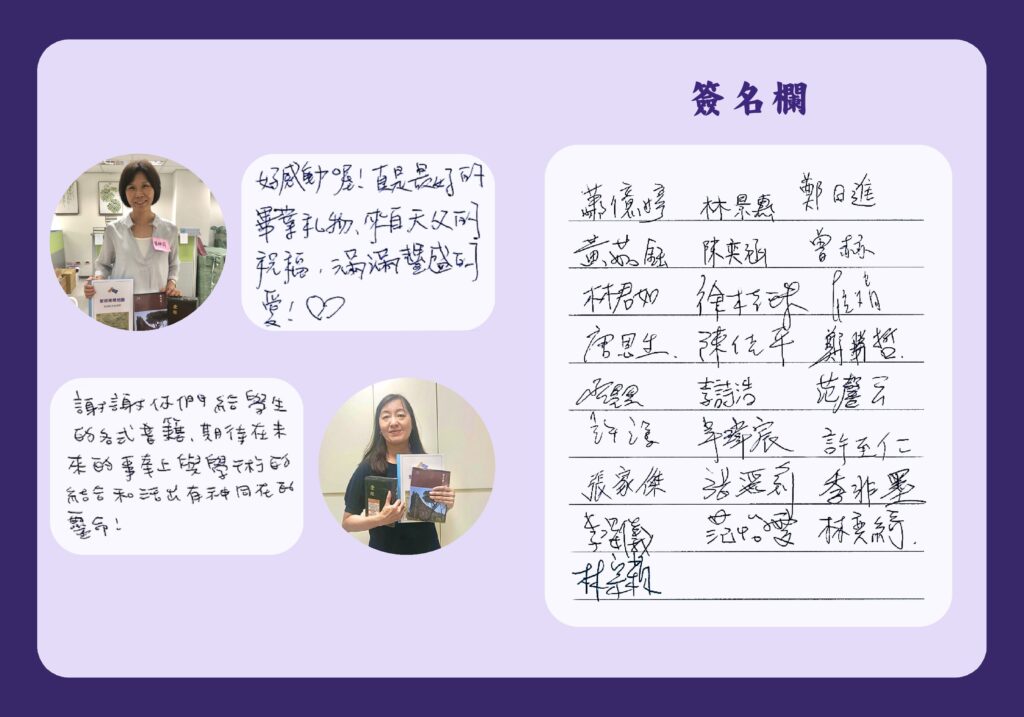 簽名欄
好感動喔！真是最好的
畢業礼物、來自天父的
祝福，滿滿豐盛的
愛！
謝謝你們給學生
的各式書籍，期待在未
來的事奉上與學術的
結合和活出有神同在的
靈命！
聖經
聖經
蕭億婷 林景惠 鄭日進
黃茹鈺 陳奕涵 曾
林君如 徐桂球
唐思生. 陳佳平 鄭勝哲.
李詩浩 范馨云
許 辛瑋宸 許至仁
張家傑 李非墨
李 范 愛 林奕綺.
林宗穎